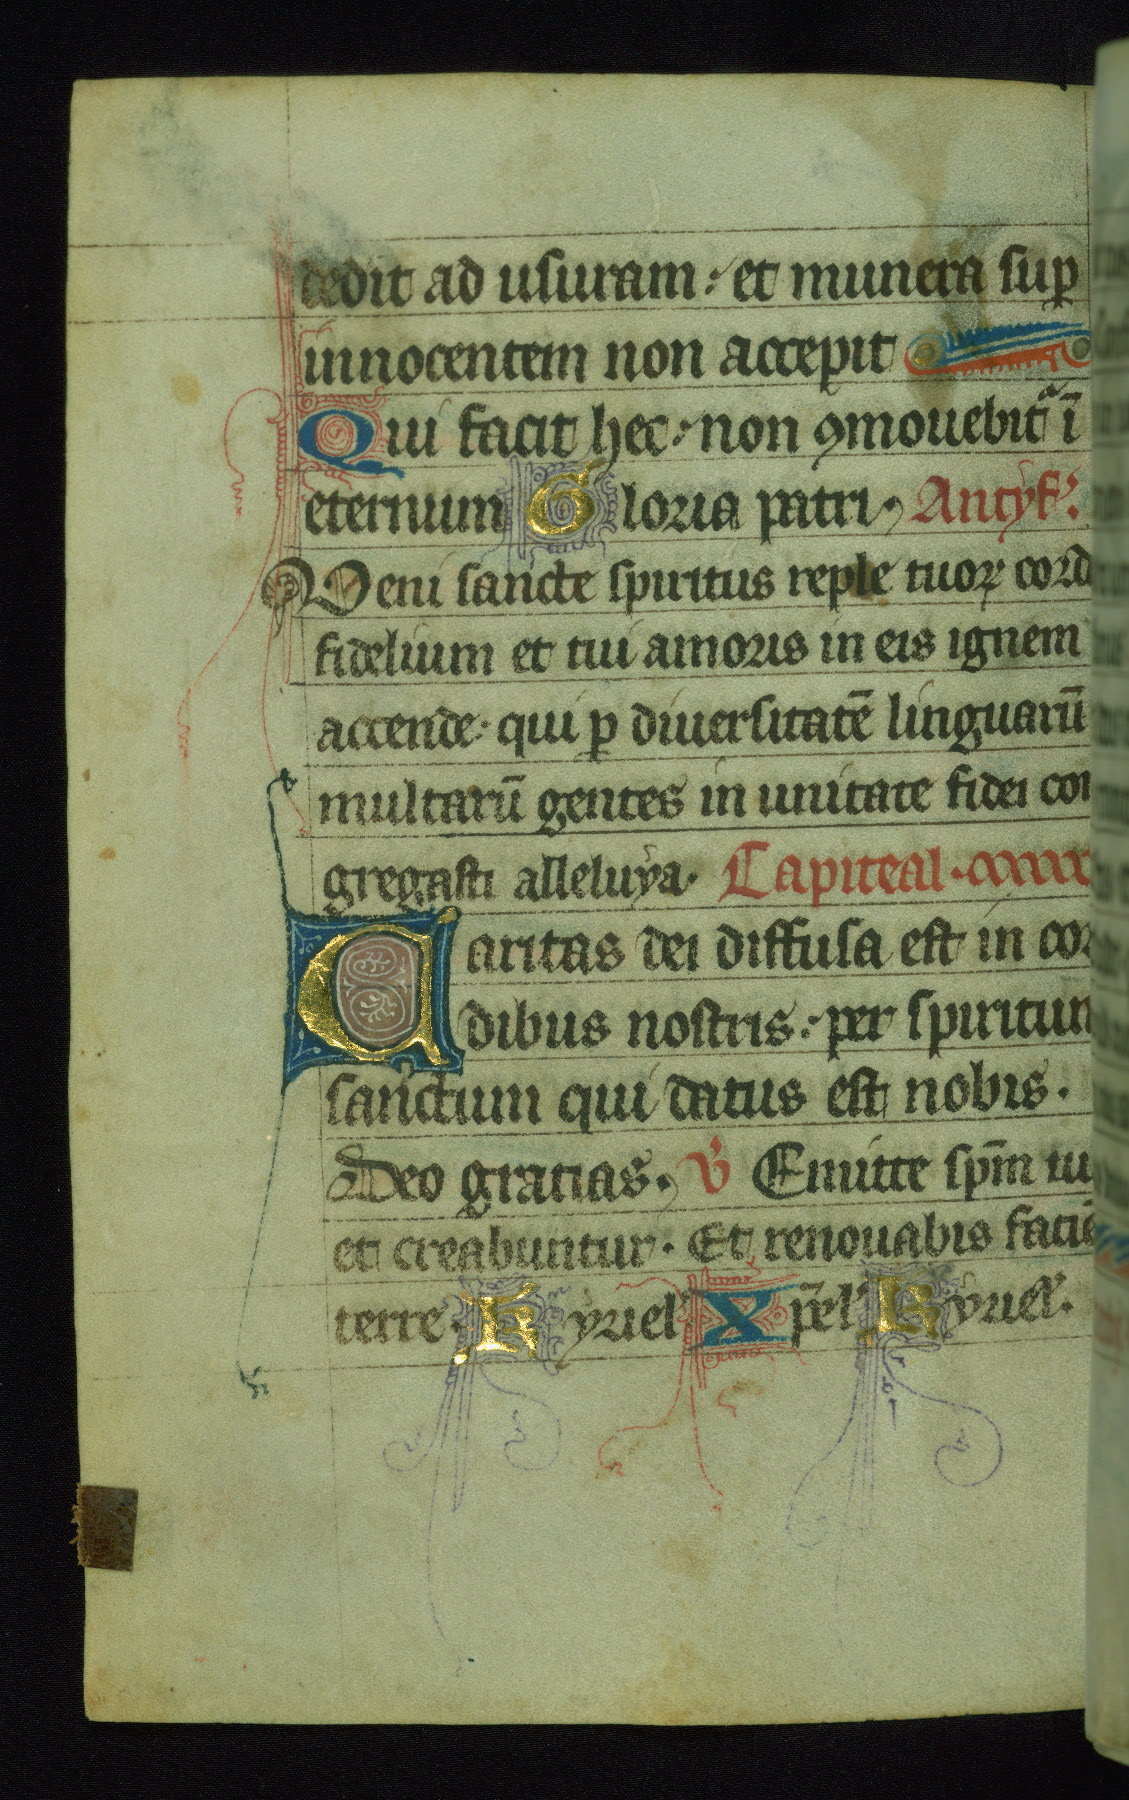 dedit ad usuram et munera sup
innocentem non accepit
Qui facit hec non ꝯmouebit ī
eternum Gloria patri Antyf
Veni sancte spiritus reple tuoꝝ cord
fidelium et tui amoris in eis ignem
accende qui ꝑ diuersitatē linguarū
multarū gentes in unitate fidei con
gregasti alleluya. Capiteal
Caritas dei diffusa est in cor
dibus nostris per spiritum
sanctum qui datus est nobis.
Deo gratias. V Emitte spm̄ tu
et creabuntur. Et renouabis faciē
terre. Kyriel Xp̄el Kyriel.